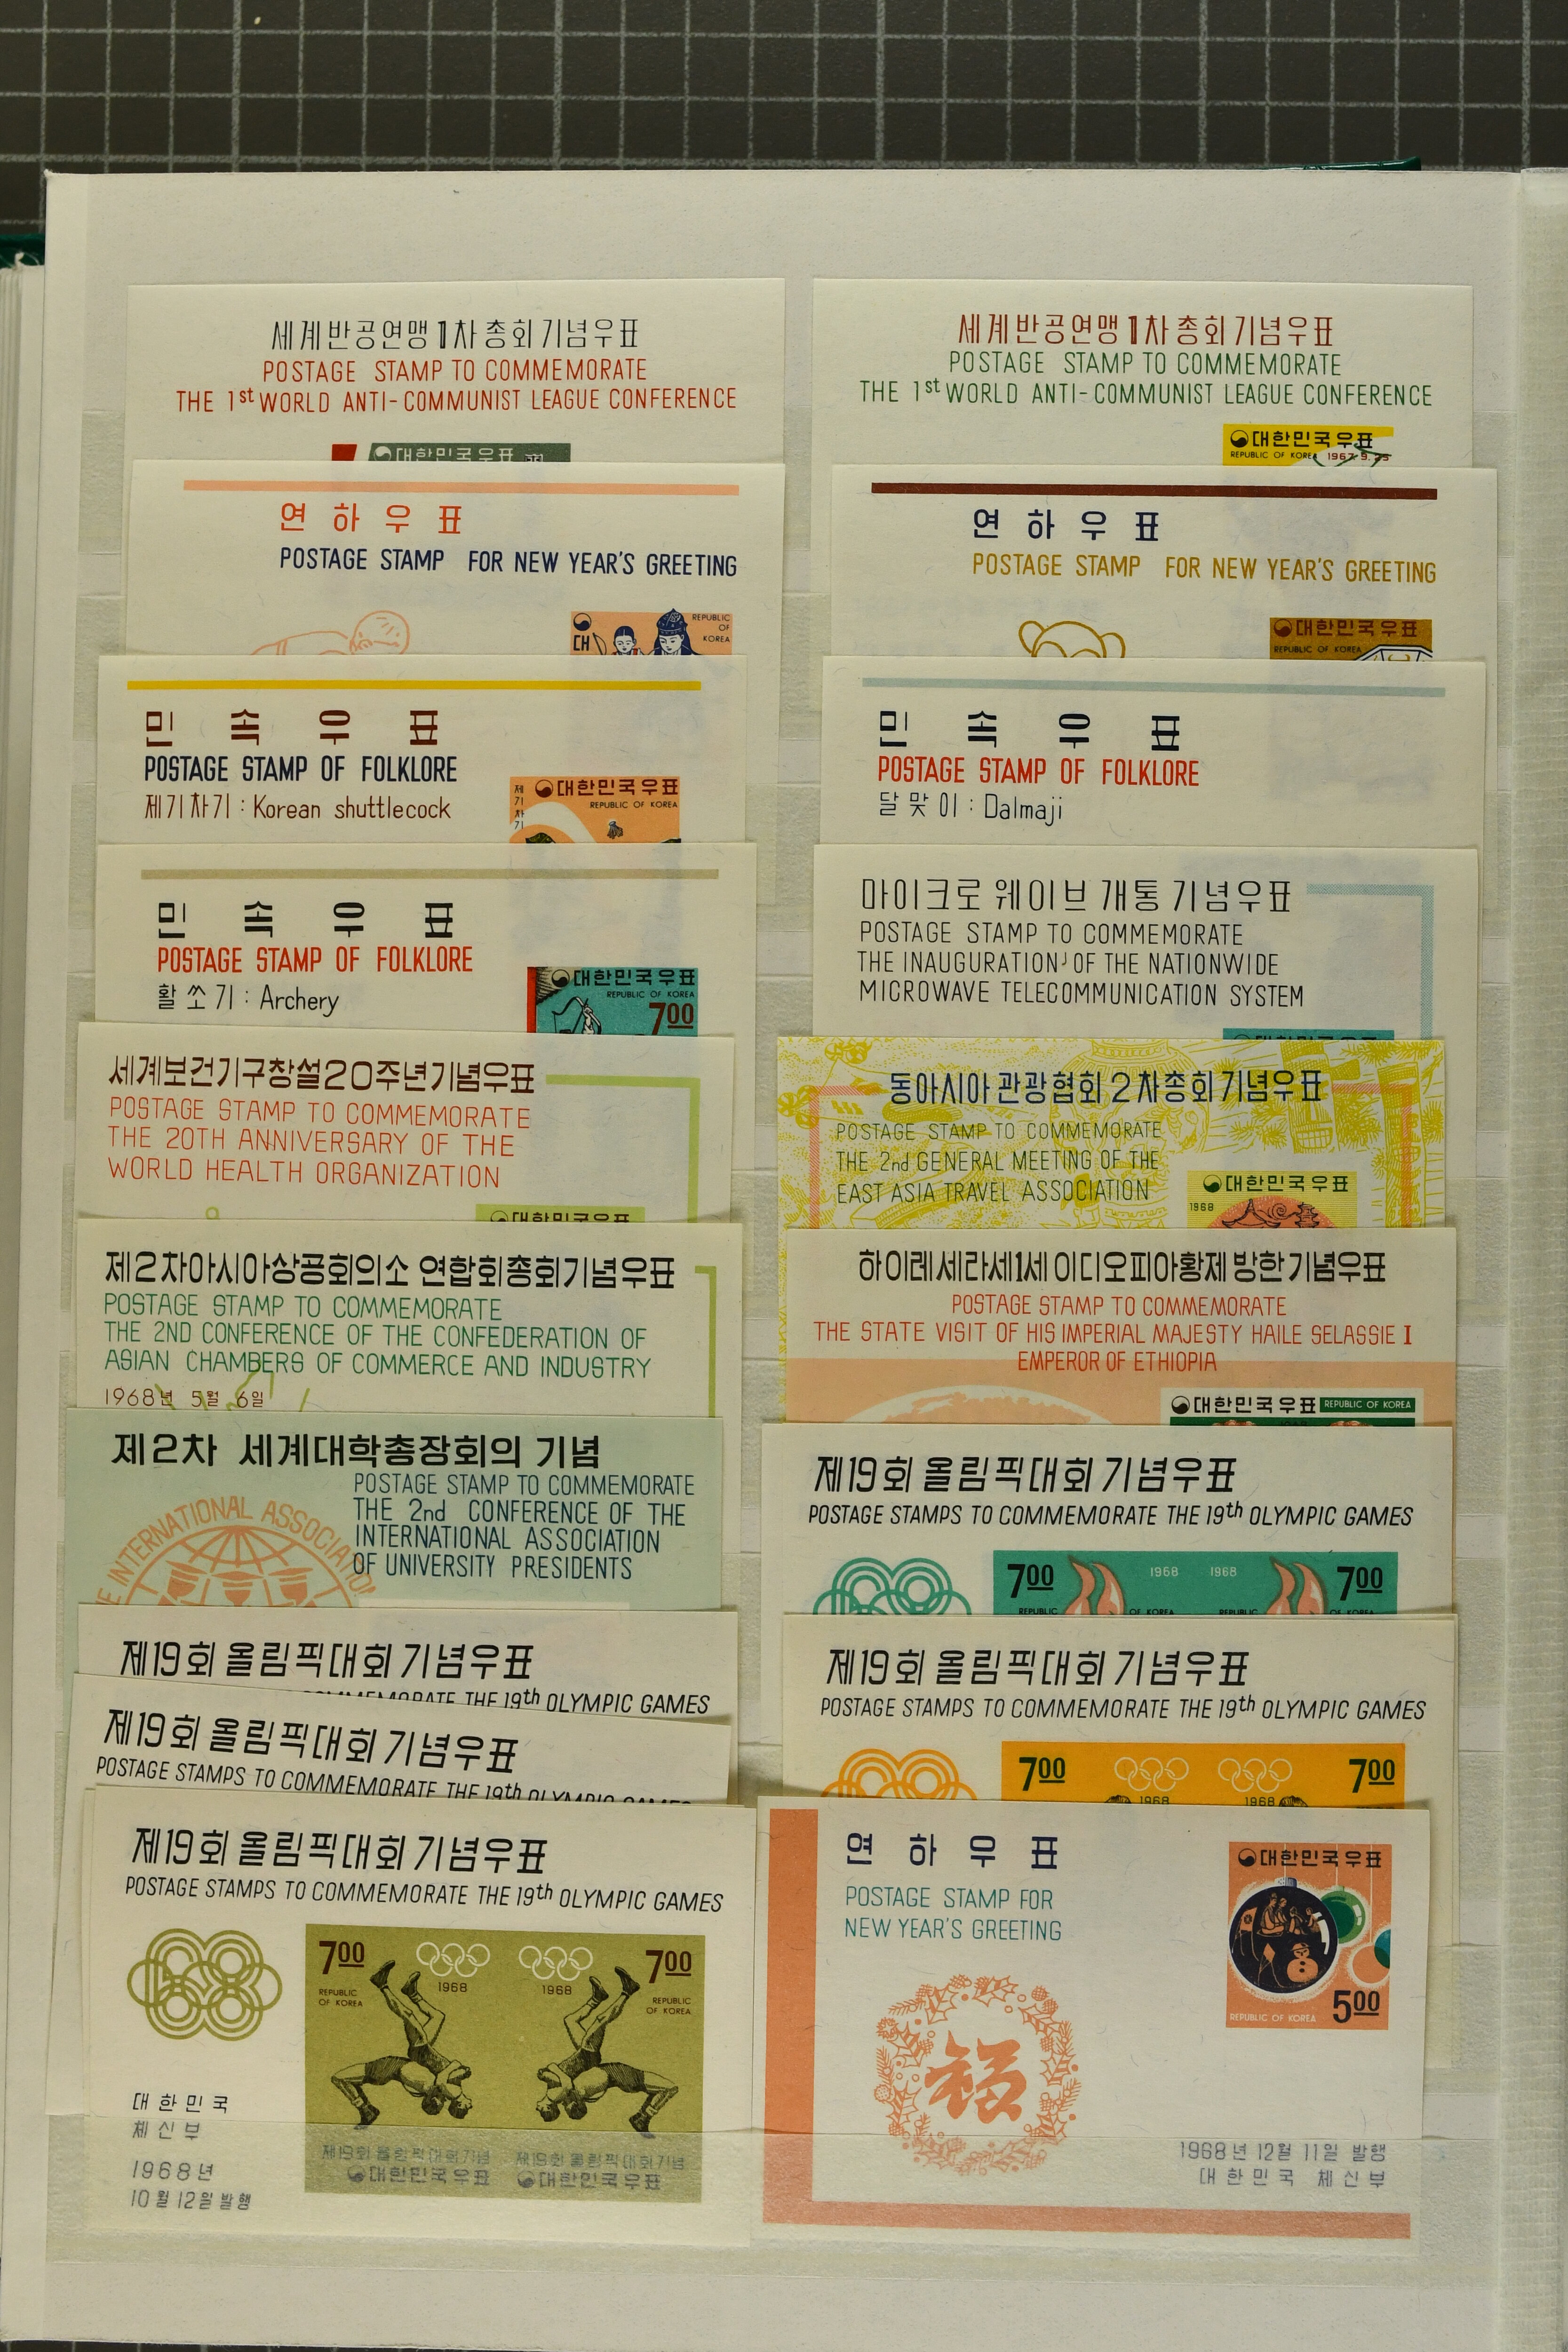 세계반공연맹 1차 총회기념우표
POSTAGE STAMP TO COMMEMORATE
THE 1st WORLD ANTI-COMMUNIST LEAGUE CONFERENCE
대한민국우표
세계반공연맹 1차 총회기념우표
POSTAGE STAMP TO COMMEMORATE
THE 1st WORLD ANTI-COMMUNIST LEAGUE CONFERENCE
대한민국우표
REPUBLIC OF KOREA 1967.9.25
연하우표
POSTAGE STAMP FOR NEW YEAR'S GREETING
대
REPUBLIC
OF
KOREA
연하우표
POSTAGE STAMP FOR NEW YEAR'S GREETING
대한민국우표
REPUBLIC OF KOREA
민속우표
POSTAGE STAMP OF FOLKLORE
제기차기 : Korean shuttlecock
제기차기
대한민국우표
REPUBLIC OF KOREA
민속우표
POSTAGE STAMP OF FOLKLORE
달맞이 : Dalmaji
민속우표
POSTAGE STAMP OF FOLKLORE
활쏘기 : Archery
대한민국우표
REPUBLIC OF KOREA
700
마이크로 웨이브 개통 기념우표
POSTAGE STAMP TO COMMEMORATE
THE INAUGURATION OF THE NATIONWIDE
MICROWAVE TELECOMMUNICATION SYSTEM
세계보건기구창설20주년기념우표
POSTAGE STAMP TO COMMEMORATE
THE 20TH ANNIVERSARY OF THE
WORLD HEALTH ORGANIZATION
대한민국우표
동아시아 관광협회 2차총회기념우표
POSTAGE STAMP TO COMMEMORATE
THE 2nd GENERAL MEETING OF THE
EAST ASIA TRAVEL ASSOCIATION
대한민국우표
1968
제2차아시아상공회의소 연합회총회기념우표
POSTAGE STAMP TO COMMEMORATE
THE 2ND CONFERENCE OF THE CONFEDERATION OF
ASIAN CHAMBERS OF COMMERCE AND INDUSTRY
1968년 5월 6일
하이레세라세1세 이디오피아황제 방한기념우표
POSTAGE STAMP TO COMMEMORATE
THE STATE VISIT OF HIS IMPERIAL MAJESTY HAILE SELASSIE I
EMPEROR OF ETHIOPIA
대한민국우표 REPUBLIC OF KOREA
제2차 세계대학총장회의 기념
POSTAGE STAMP TO COMMEMORATE
THE 2nd CONFERENCE OF THE
INTERNATIONAL ASSOCIATION
OF UNIVERSITY PRESIDENTS
E INTERNATIONAL ASSOCIATION
제19회 올림픽대회 기념우표
POSTAGE STAMPS TO COMMEMORATE THE 19th OLYMPIC GAMES
700 1968 1968 700
REPUBLIC OF KOREA REPUBLIC OF KOREA
제19회 올림픽대회 기념우표
COMMEMORATE THE 19th OLYMPIC GAMES
제19회 올림픽대회 기념우표
POSTAGE STAMPS TO COMMEMORATE THE 19th OLYMPIC GAMES
700 700
1968 1968
제19회 올림픽대회 기념우표
POSTAGE STAMPS TO COMMEMORATE THE 19th OLYMPIC GAMES
제19회 올림픽대회 기념우표
POSTAGE STAMPS TO COMMEMORATE THE 19th OLYMPIC GAMES
700 700
1968 1968
REPUBLIC
OF KOREA
REPUBLIC
OF KOREA
제19회 올림픽대회기념 제19회 올림픽대회기념
대한민국우표 대한민국우표
대한민국
체신부
1968년
10월 12일 발행
연하우표
POSTAGE STAMP FOR
NEW YEAR'S GREETING
대한민국우표
500
REPUBLIC OF KOREA
福
1968년 12월 11일 발행
대한민국 체신부